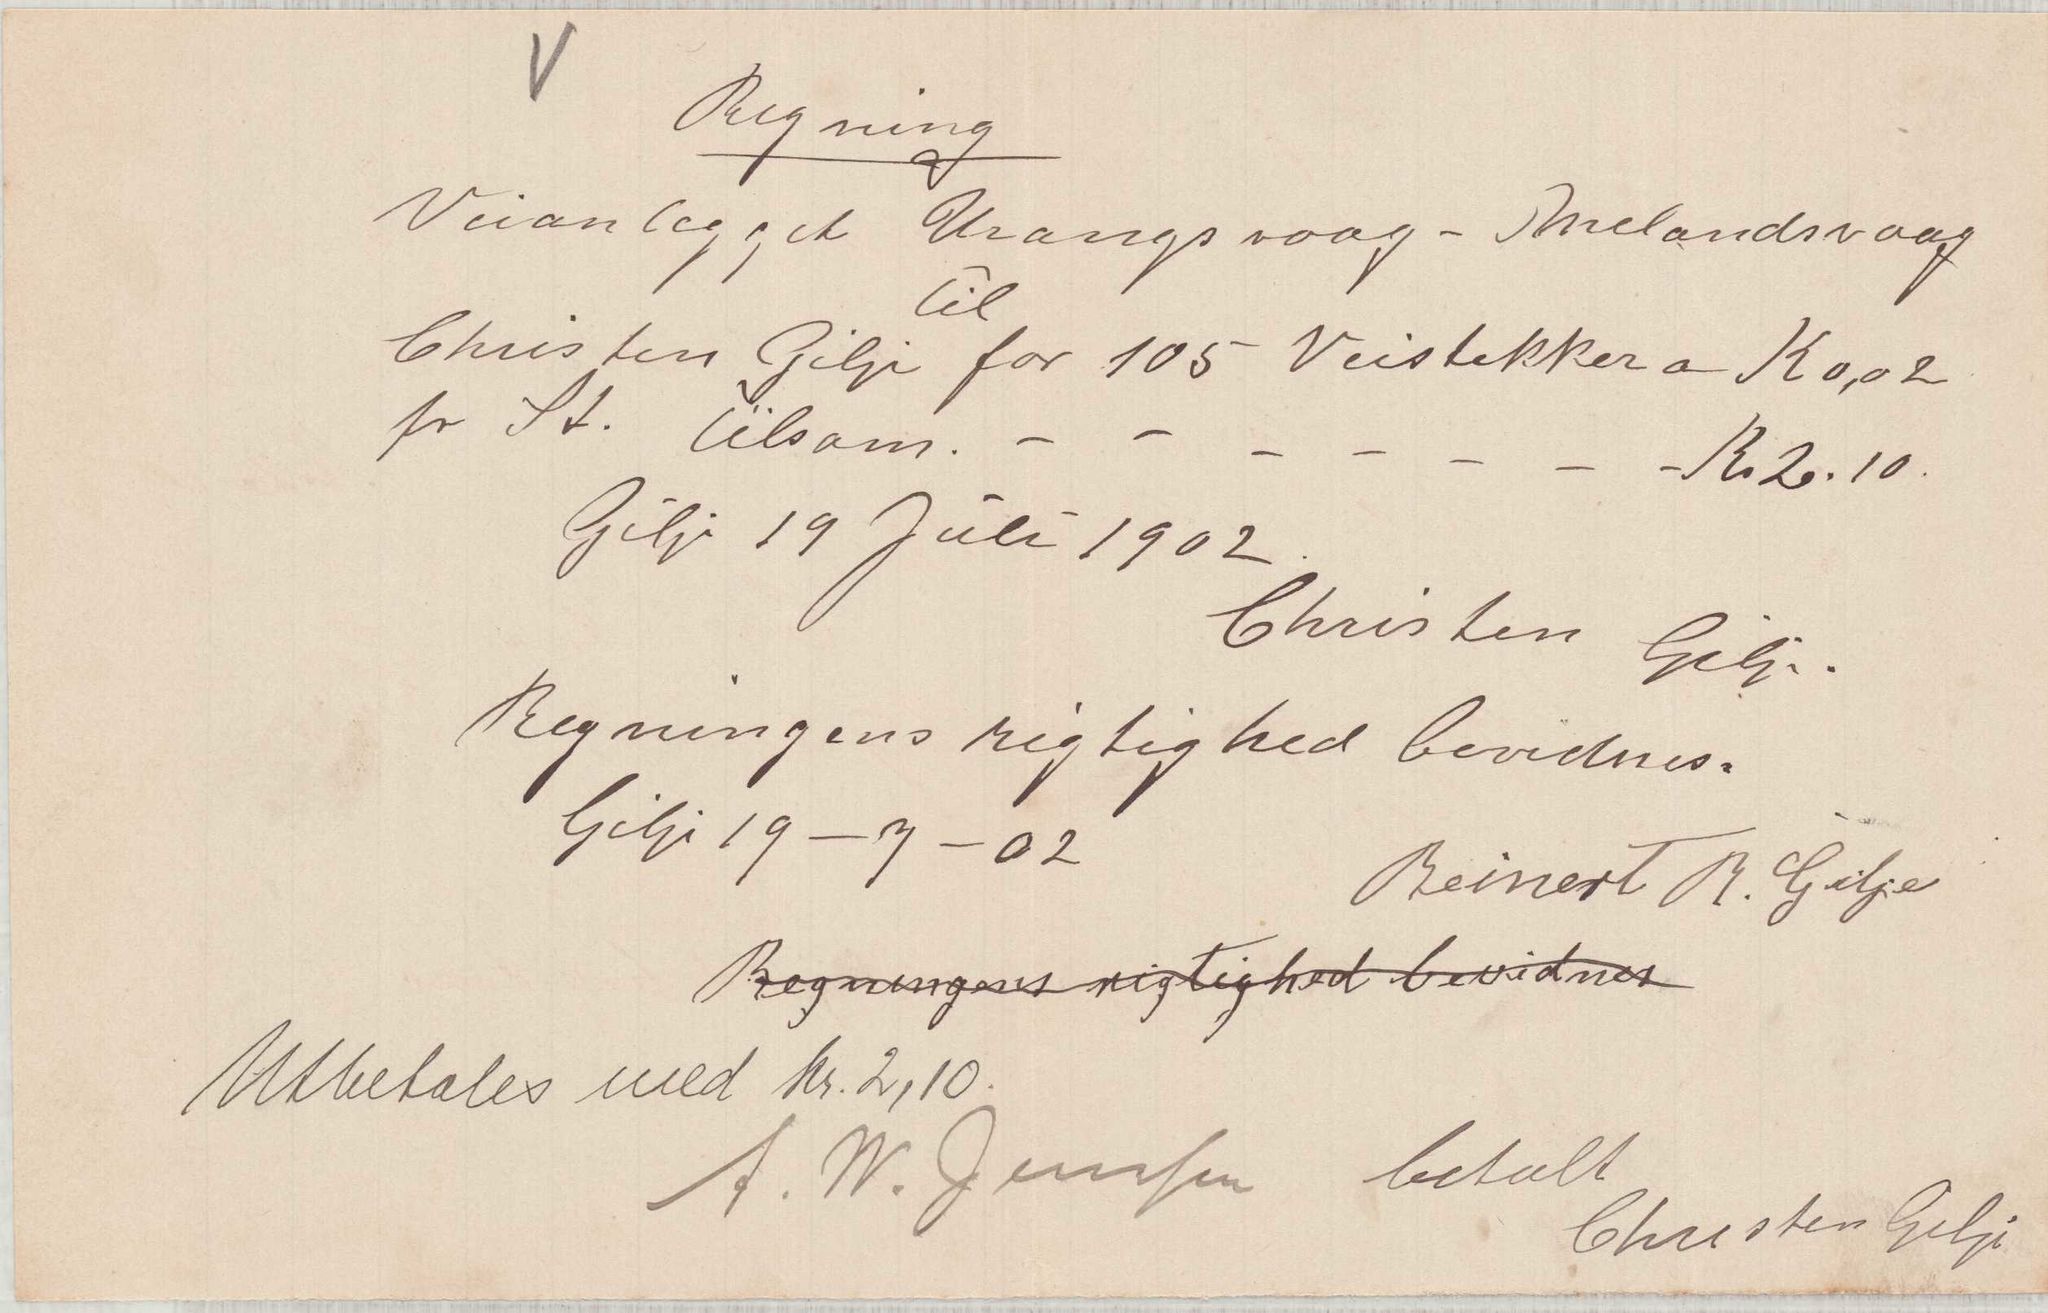 V
Regning
Veianlegget Urangsvaag - Melandsvaag
til
Christen Gilje for 105 Veistekker a K 0,02
pr St. tilsam. - - - - - - - K. 2.10.
Gilje 19 Juli 1902.
Christen Gilje.
Regningens rigtighed bevidnes.
Gilje 19 - 7 - 02
Reinert R. Gilje
Regningens rigtighed bevidnes
Utbetales med Kr. 2,10.
A. W. Jenssen betalt
Christen Gilje